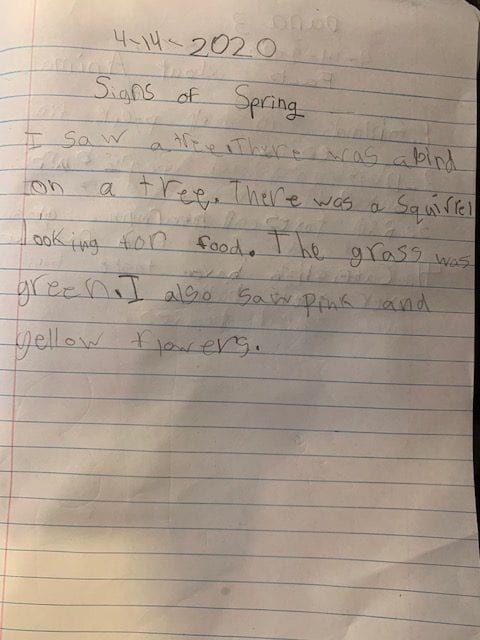 4-14-2020
Signs of Spring
I saw a tree. There was a bird
on a tree. There was a Squirrel
looking for food. The grass was
green. I also saw pink and
yellow flowers.